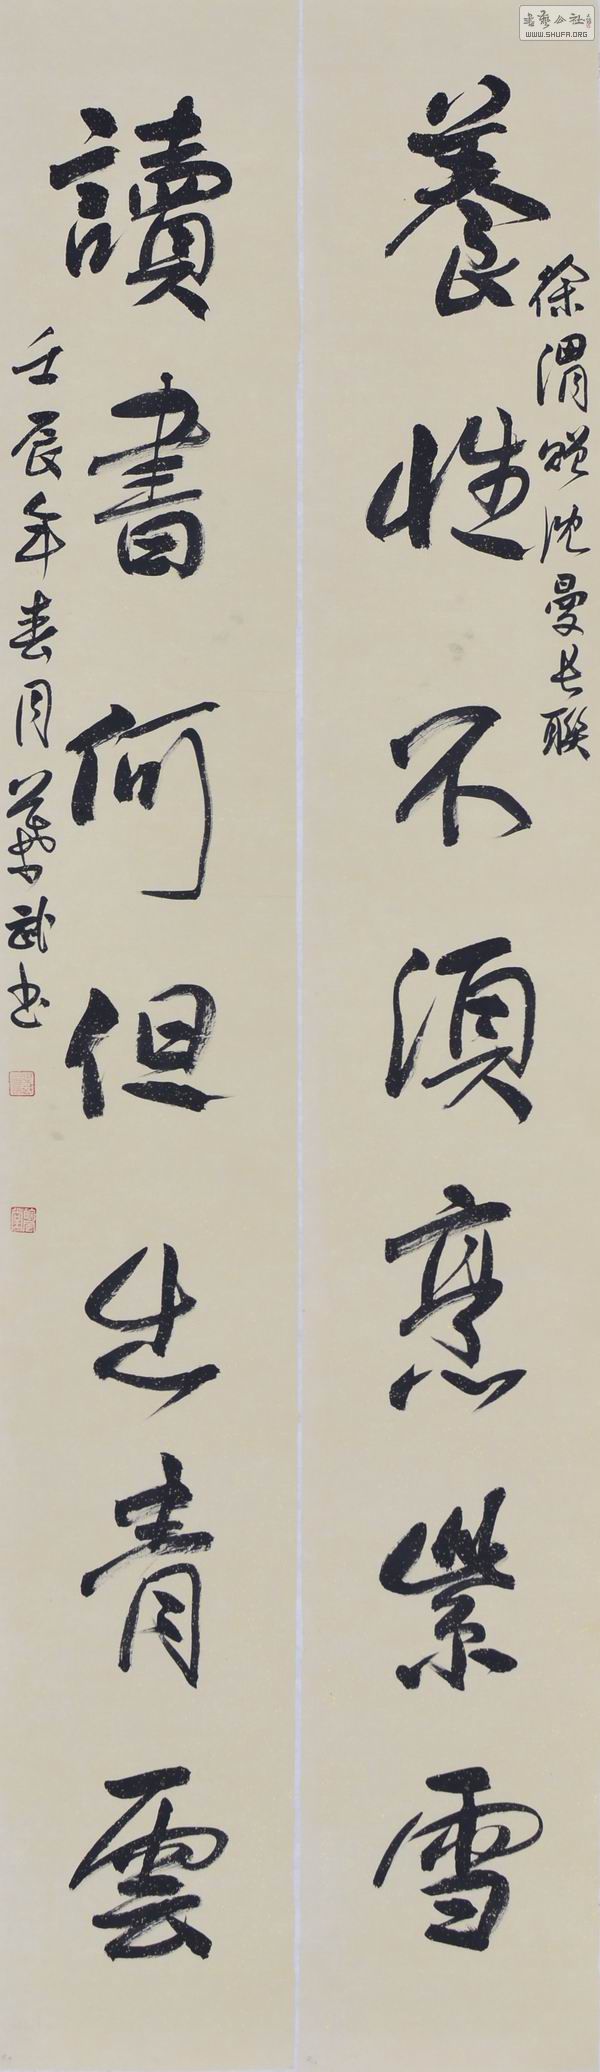 養性不須烹紫雪
徐渭贈沈曼長聯
讀書何但志青雲
壬辰年春月葉武書
書藝公社
WWW.SHUFA.ORG